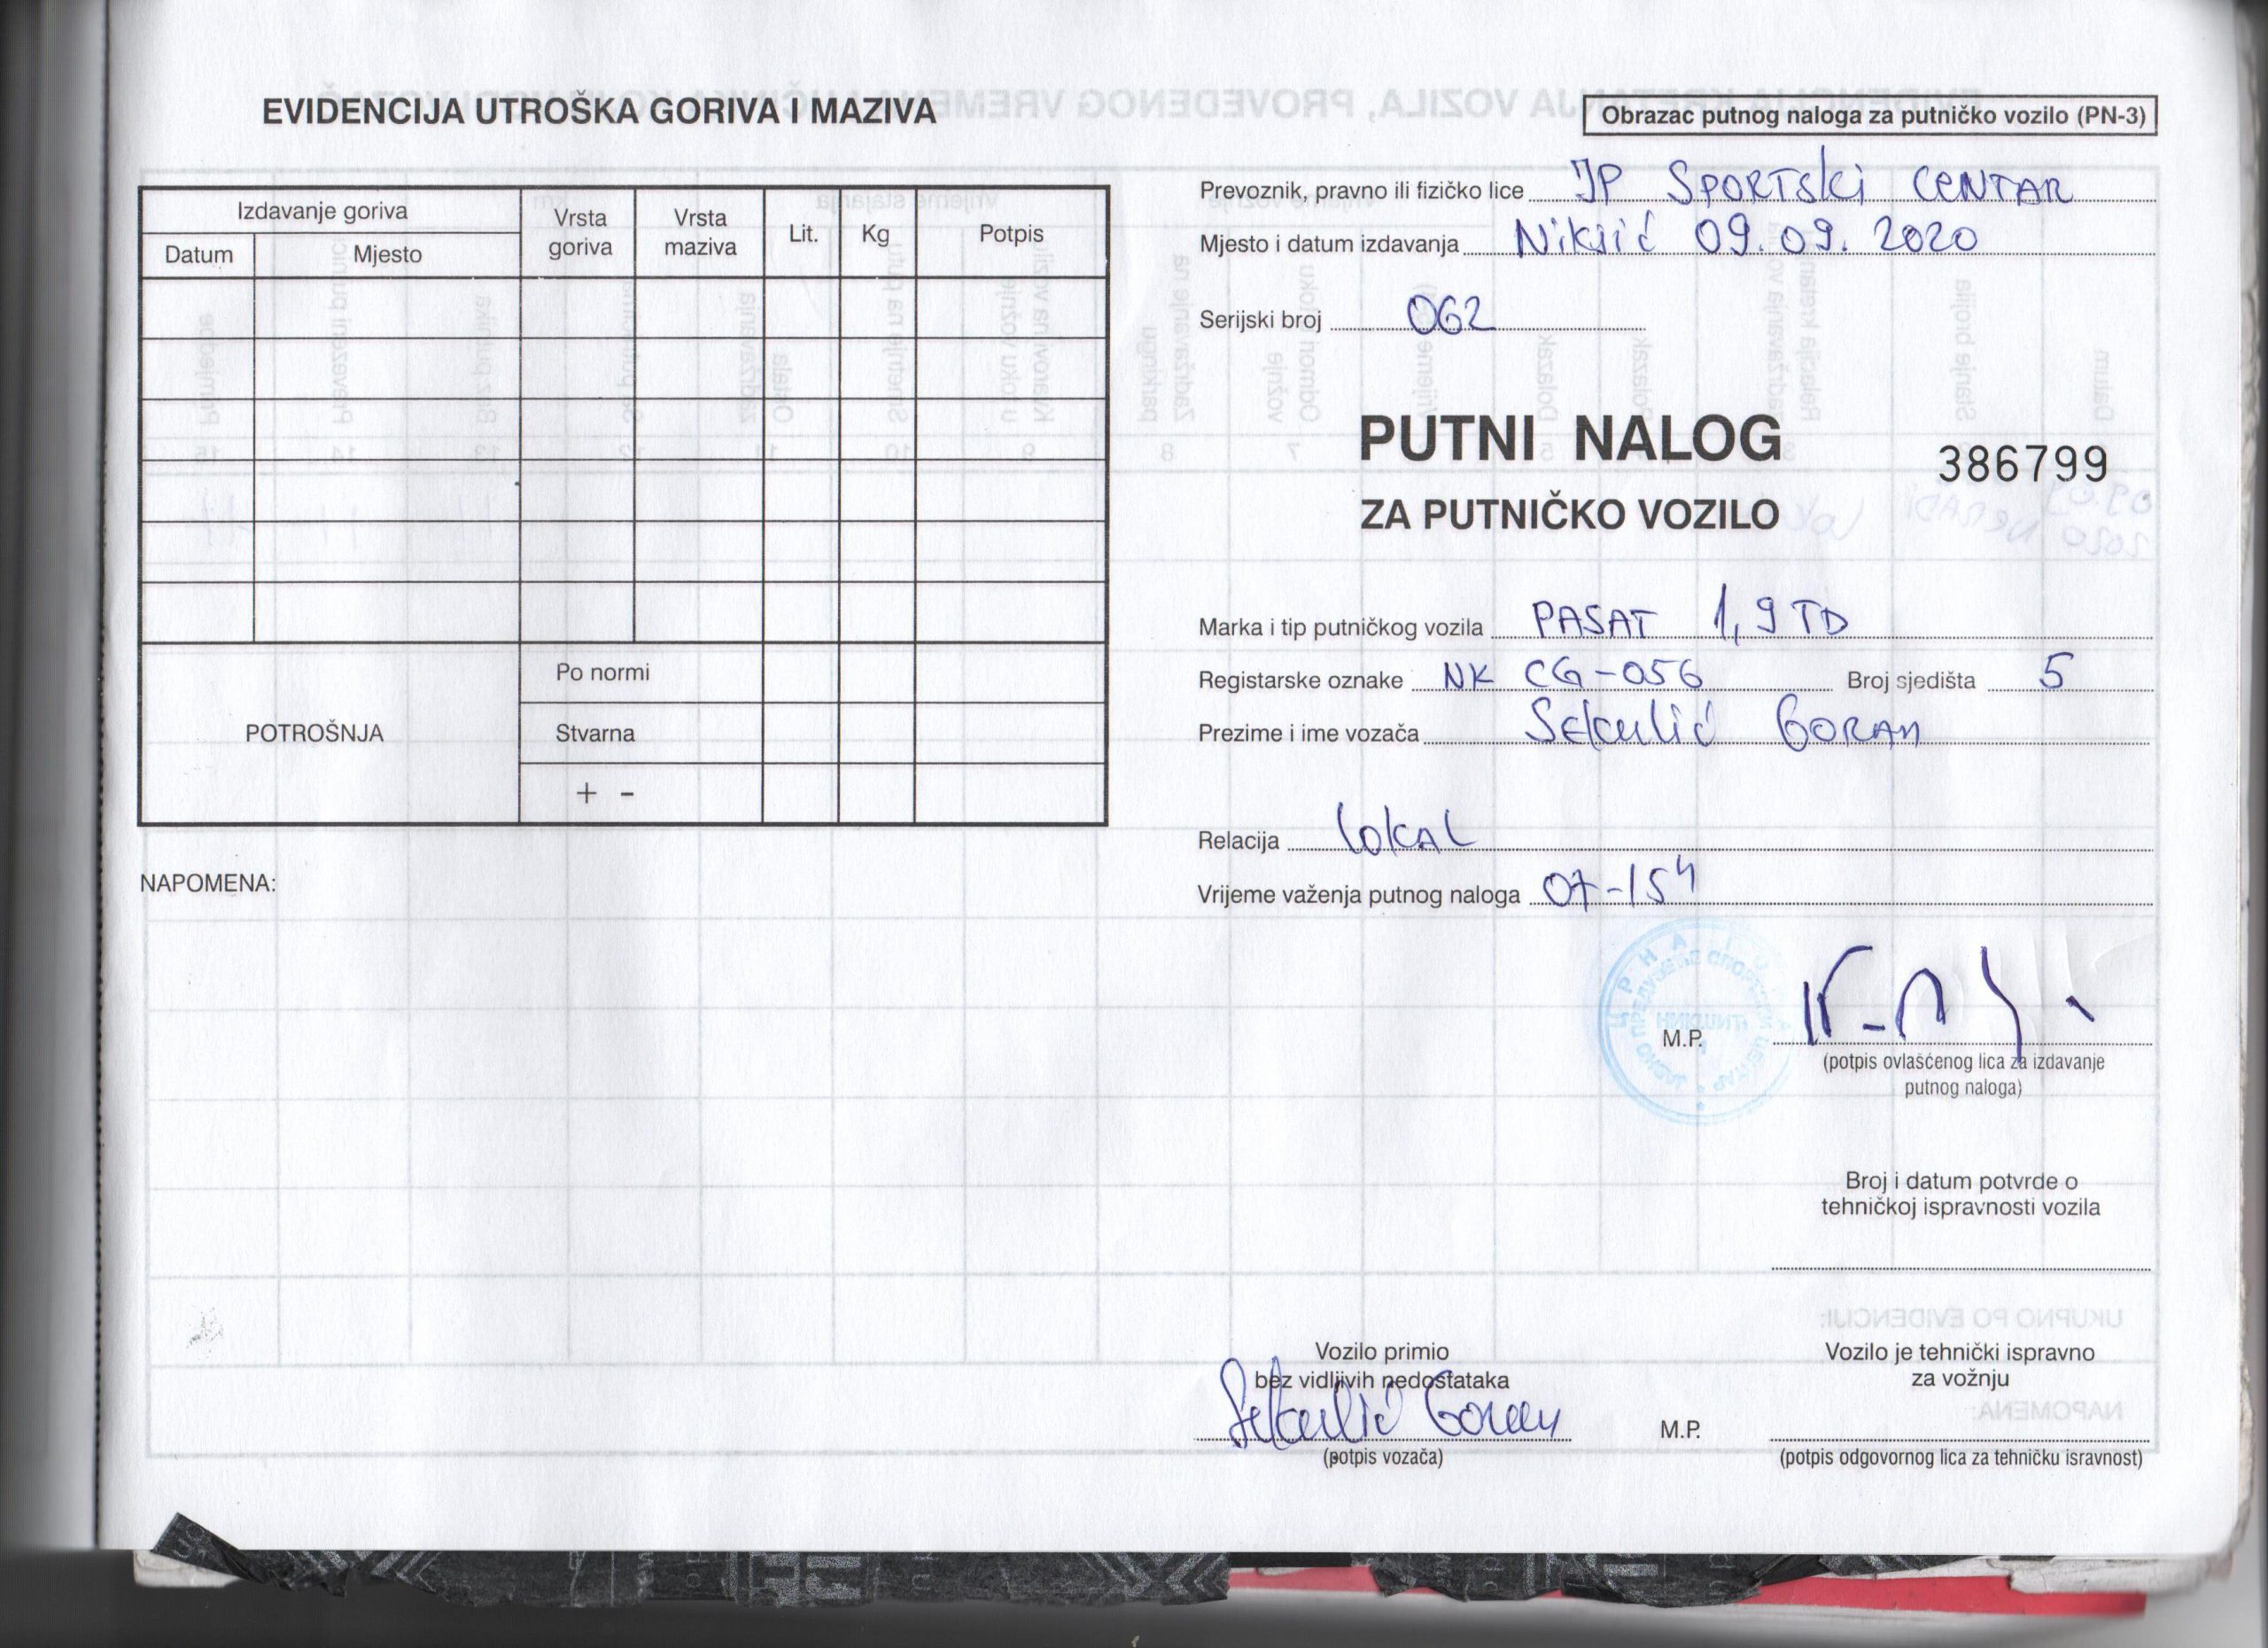 EVIDENCIJA UTROŠKA GORIVA I MAZIVA
Izdavanje goriva
Datum
Mjesto
Vrsta goriva
Vrsta maziva
Lit.
Kg
Potpis
POTROŠNJA
Po normi
Stvarna
+ -
NAPOMENA:
Obrazac putnog naloga za putničko vozilo (PN-3)
Prevoznik, pravno ili fizičko lice JP SPORTSKI CENTAR
Mjesto i datum izdavanja Nikšić 09.09. 2020
Serijski broj 062
PUTNI NALOG
386799
ZA PUTNIČKO VOZILO
Marka i tip putničkog vozila PASAT 1,9 TD
Registarske oznake NK CG-056 Broj sjedišta 5
Prezime i ime vozača Sekulić GORAN
Relacija LOKAL
Vrijeme važenja putnog naloga 07-15h
M.P.
(potpis ovlašćenog lica za izdavanje
putnog naloga)
Broj i datum potvrde o
tehničkoj ispravnosti vozila
Vozilo primio
bez vidljivih nedostataka
Sekulić Goran
(potpis vozača)
M.P.
Vozilo je tehnički ispravno
za vožnju
(potpis odgovornog lica za tehničku isravnost)